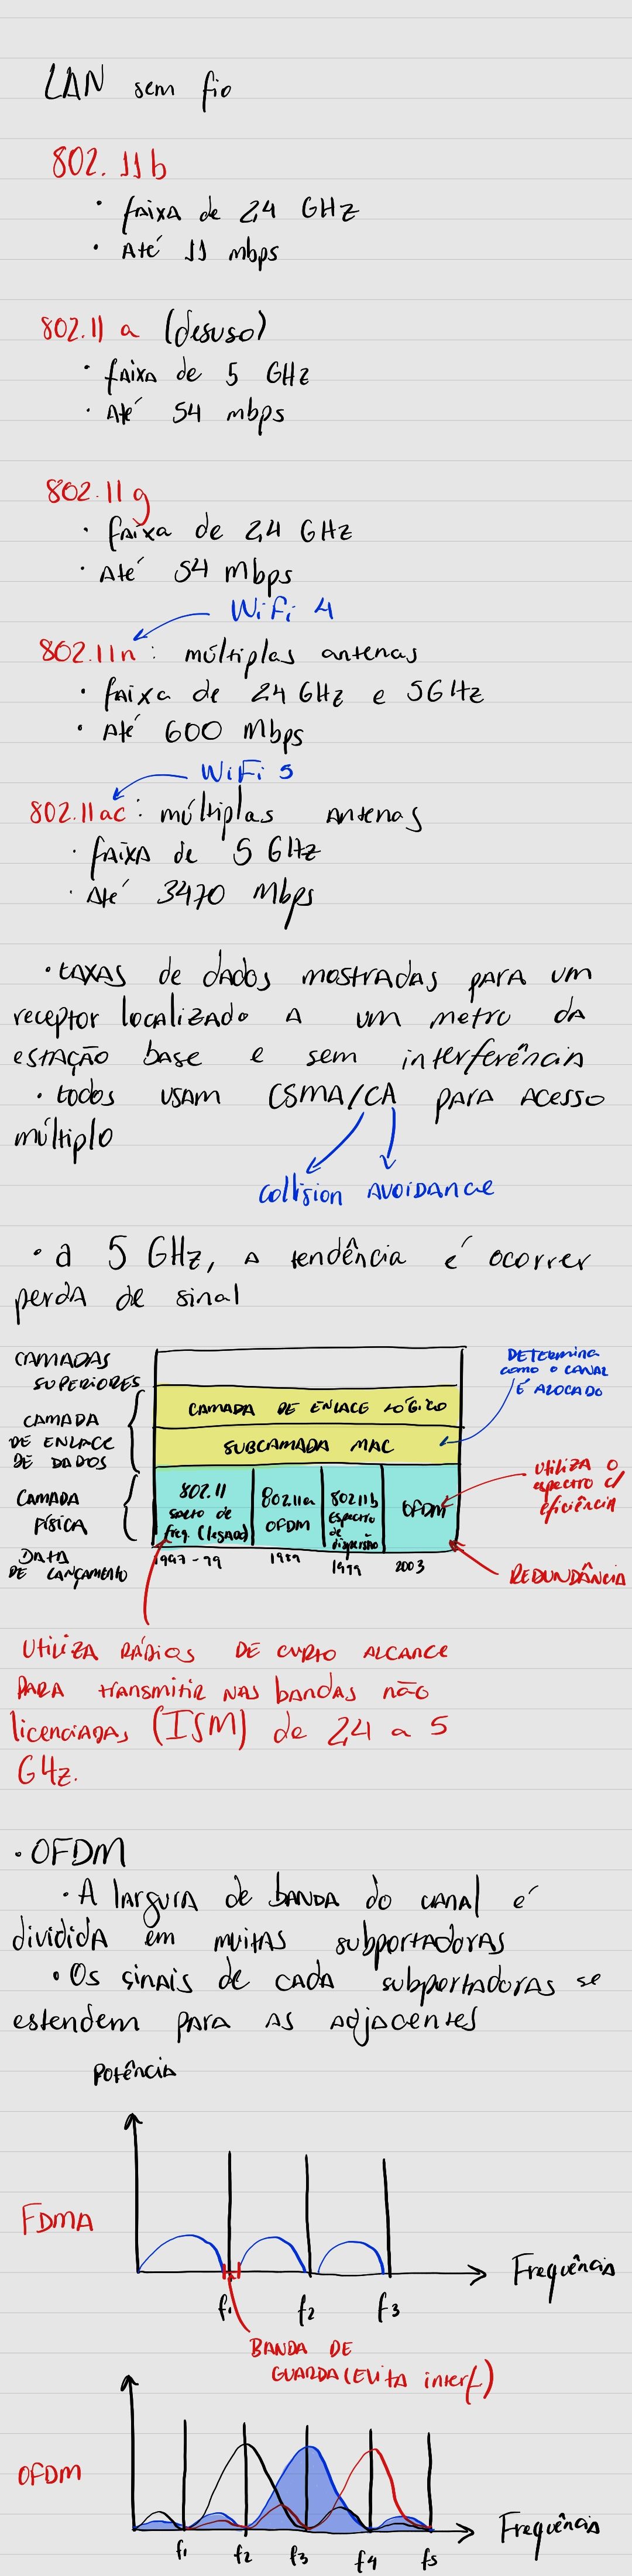 LAN sem fio
802.11b
• faixa de 2,4 GHz
• Até 11 mbps
802.11 a (desuso)
• faixa de 5 GHz
• Até 54 mbps
802.11 g
• faixa de 2,4 GHz
• Até 54 Mbps
WiFi 4
802.11n: múltiplas antenas
• faixa de 2,4 GHz e 5GHz
• Até 600 Mbps
WiFi 5
802.11ac: múltiplas antenas
• faixa de 5 GHz
• Até 3470 Mbps
• taxas de dados mostradas para um
receptor localizado a um metro da
estação base e sem interferência
• todos usam CSMA/CA para acesso
múltiplo
Collision Avoidance
• a 5 GHz, a tendência é ocorrer
perda de sinal
CAMADAS
SUPERIORES
DETERMINA
como o CANAL
É ALOCADO
CAMADA
DE ENLACE
DE DADOS
CAMADA DE ENLACE LÓGICO
SUBCAMADA MAC
CAMADA
FÍSICA
802.11
salto de
freq. (legado)
802.11a
OFDM
802.11b
Espectro
de
dispersão
OFDM
utiliza o
espectro c/
eficiência
DATA
DE LANÇAMENTO
1997-99
1999
1999
2003
REDUNDÂNCIA
Utiliza RÁDIOS DE CURTO ALCANCE
PARA transmitir NAS bandas não
licenciadas (ISM) de 2,4 a 5
GHz.
• OFDM
• A largura de banda do canal é
dividida em muitas subportadoras
• Os sinais de cada subportadoras se
estendem para as adjacentes
Potência
FDMA
Frequência
f1 f2 f3
BANDA DE
GUARDA (Evita interf.)
OFDM
Frequência
f1 f2 f3 f4 f5